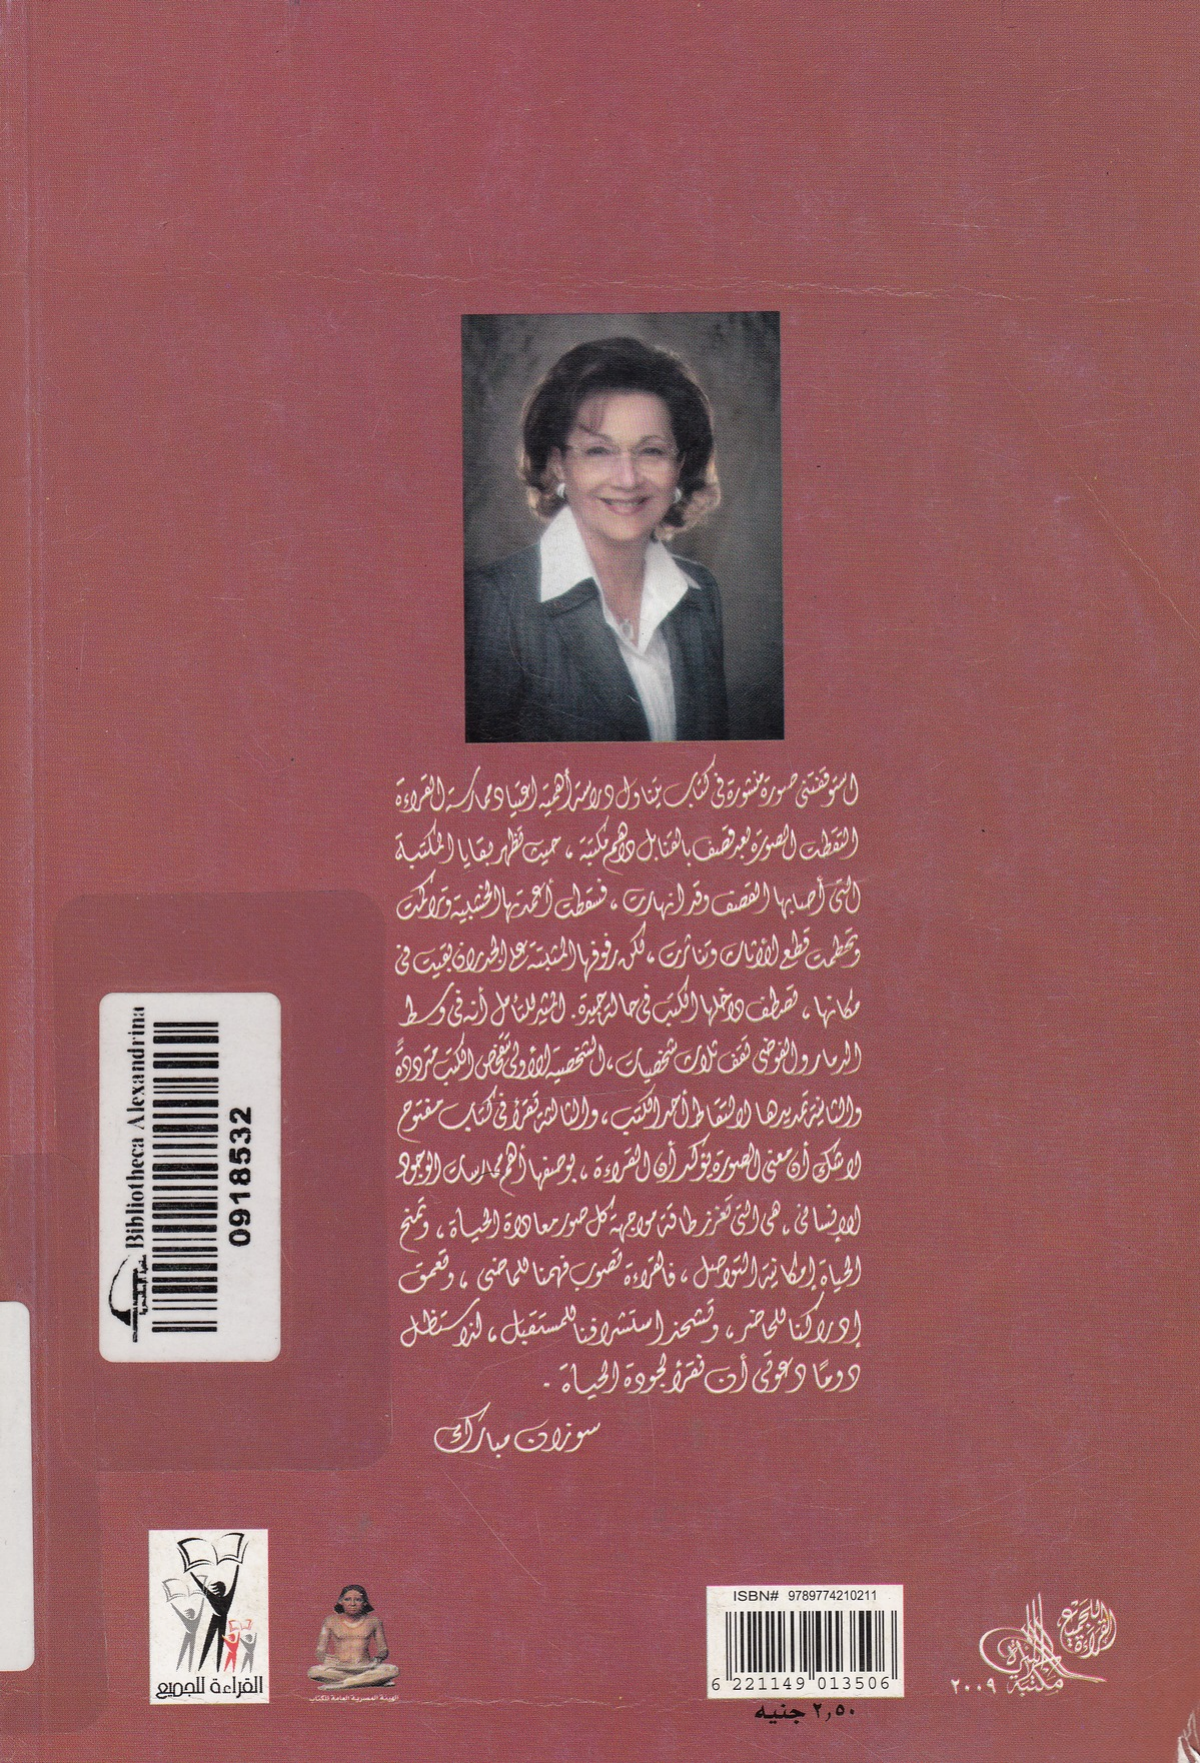 استوقفتنى صورة منشورة فى كتاب يتناول دراسة أهمية اعتياد ممارسة القراءة
التقطت الصورة بعد قصف بالقنابل داهم مكتبة ، حيث تظهر بقايا المكتبة
التى أصابها القصف وقد انهارت ، فسقطت أعمدتها الخشبية وتراكمت
وتحطمت قطع الأثاث وتناثرت ، لكن رفوفها المثبتة على الجدران بقيت فى
مكانها ، تصطف داخلها الكتب فى حالة جيدة. المثير للتأمل أنه فى وسط
الدمار والفوضى تقف ثلاث شخصيات ، الشخصية الأولى تتفحص الكتب مترددةً
والثانية تمد يدها لالتقاط أحد الكتب ، والثالثة تقرأ فى كتاب مفتوح
لاشك أن معنى الصورة يؤكد أن القراءة ، بوصفها أهم ممارسات الوجود
الإنسانى ، هى التى تعزز طاقة مواجهة كل صور معاداة الحياة ، وتمنح
الحياة إمكانية التواصل ، فالقراءة تصوب فهمنا للماضى ، وتعمق
إدراكنا للحاضر ، وتشحذ استشرافنا للمستقبل ، لذا ستظل
دومًا دعوتى أن نقرأ لجودة الحياة .
سوزان مبارك
Bibliotheca Alexandrina
مكتبة الإسكندرية
0918532
القراءة للجميع
الهيئة المصرية العامة للكتاب
ISBN# 9789774210211
6 221149 013506
٢,٥٠ جنيه
القراءة للجميع
مكتبة الأسرة
٢٠٠٩